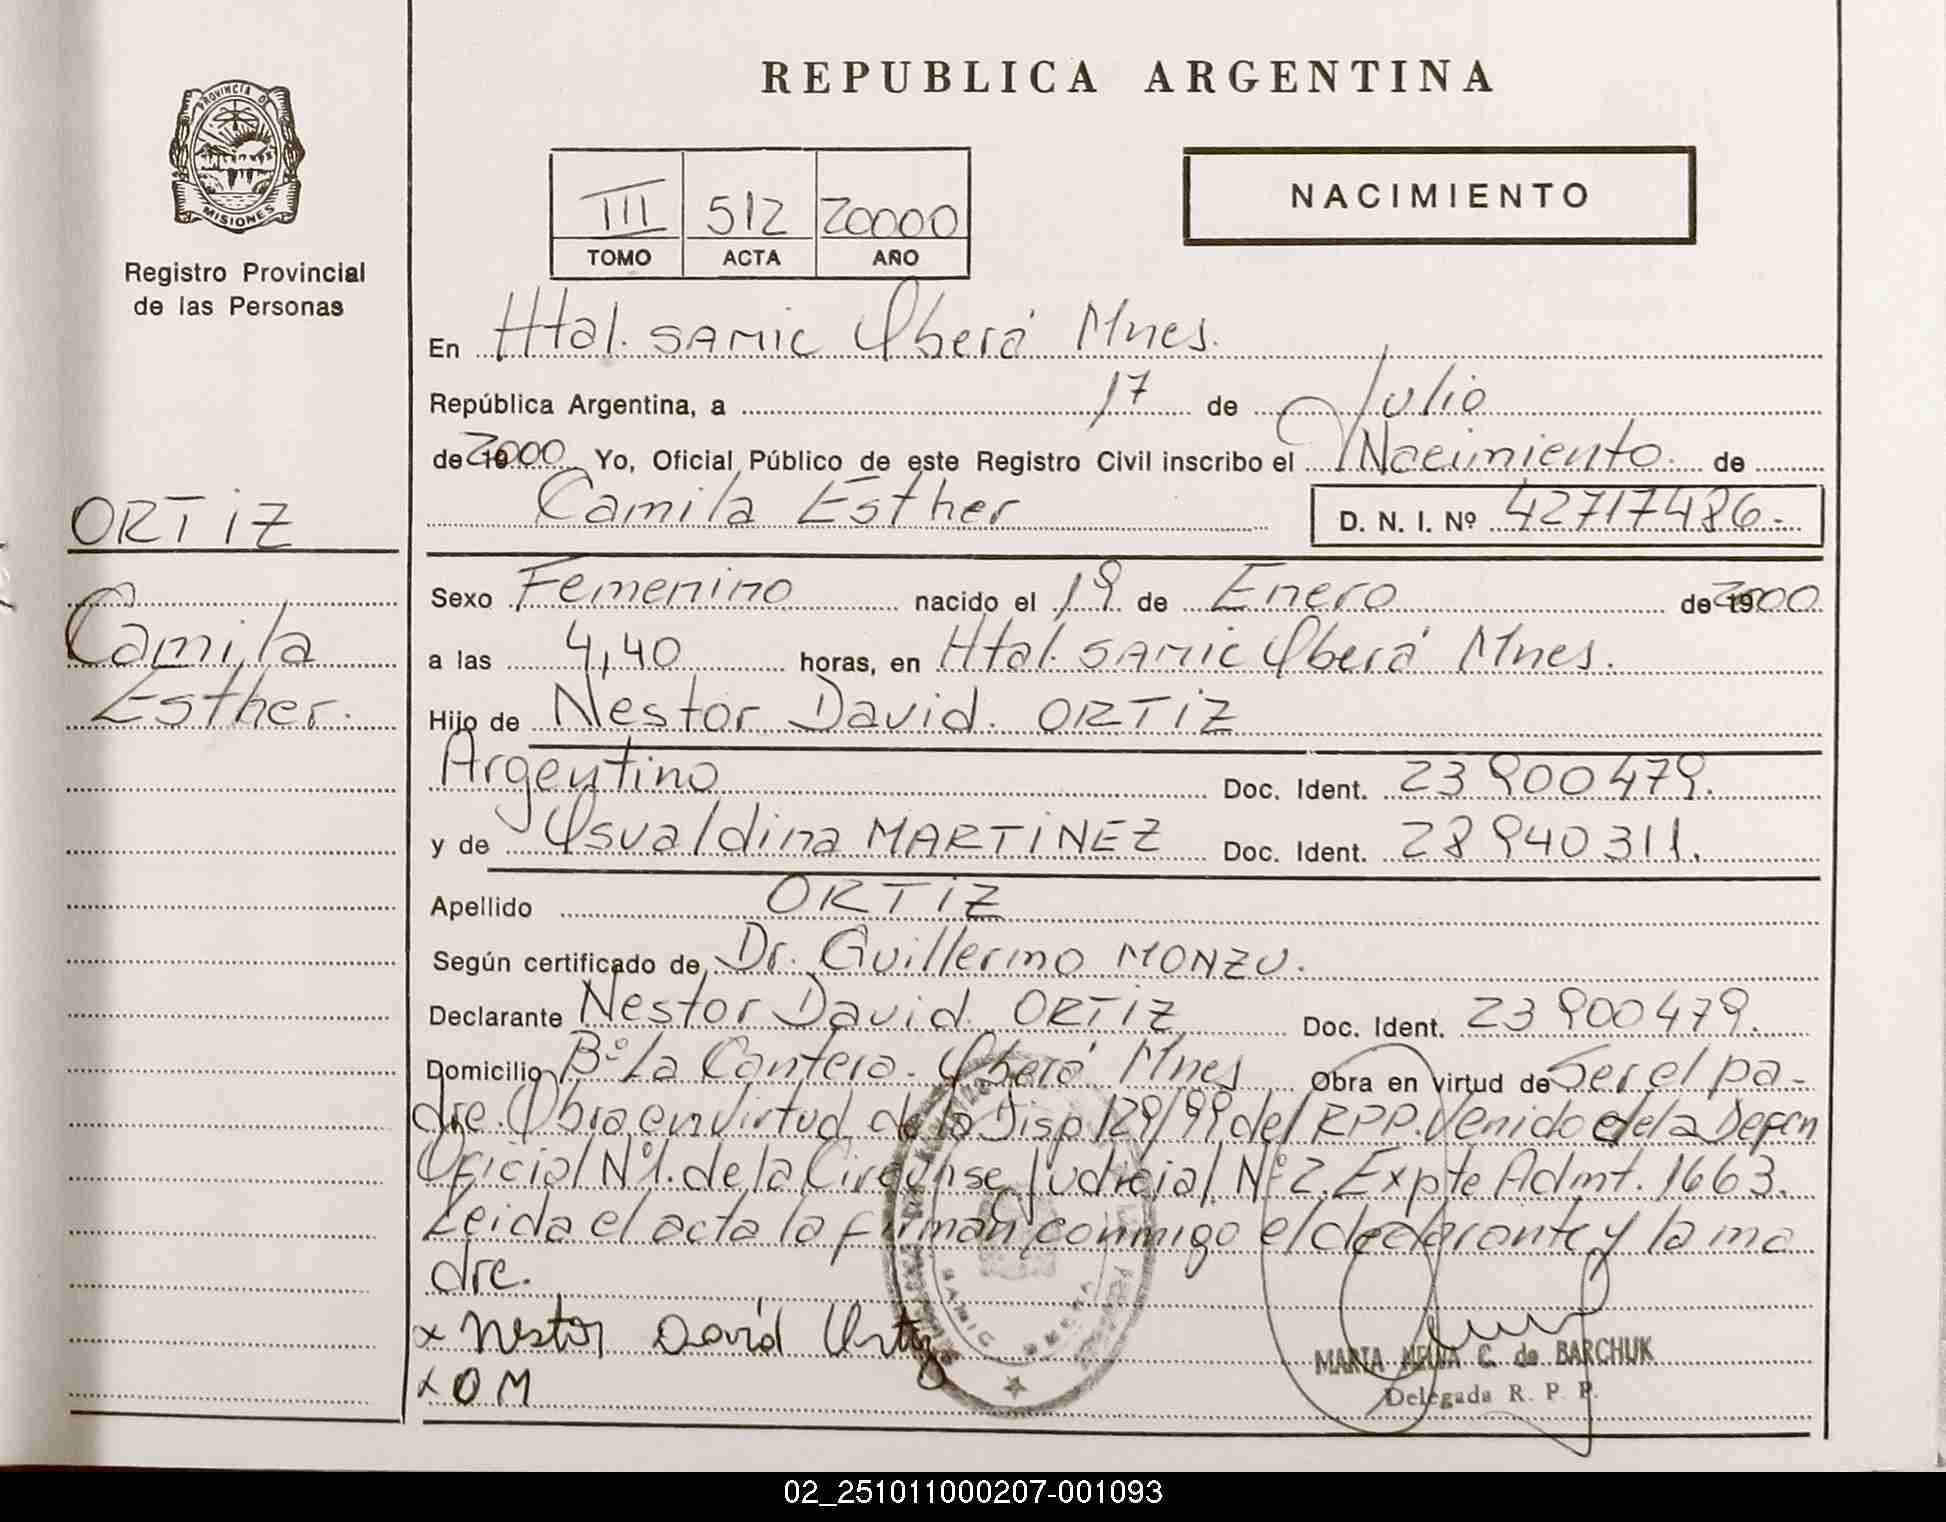 REPUBLICA ARGENTINA
PROVINCIA DE
MISIONES
Registro Provincial
de las Personas
III 512 20000
TOMO ACTA AÑO
NACIMIENTO
En Htal. SAMIC Oberá Mnes.
República Argentina, a 17 de Julio
de 2000 Yo, Oficial Público de este Registro Civil inscribo el Nacimiento de
Camila Esther D. N. I. Nº 42717486-
ORTiZ
Camila
Esther.
Sexo Femenino nacido el 19 de Enero de 2000
a las 4,40 horas, en Htal. SAMIC Oberá Mnes.
Hijo de Nestor David. ORTiZ
Argentino Doc. Ident. 23900479.
y de Osvaldina MARTiNEZ Doc. Ident. 28940311.
Apellido ORTiZ
Según certificado de Dr. Guillermo MONZU.
Declarante Nestor David. ORTiZ Doc. Ident. 23900479.
Domicilio Bº La Cantera. Oberá Mnes Obra en virtud de Ser el pa-
dre. Obra en virtud de la Disp 129/99 del RPP. Venido de la Defen
Oficial Nº1. de la Judicial Nº2. Expte Admt. 1663.
Leida el acta la firman conmigo el declarante y la ma
dre.
x Nestor David Ortiz
x O M
SAMIC
MARIA C. de BARCHUK
Delegada R. P. P.
02_251011000207-001093